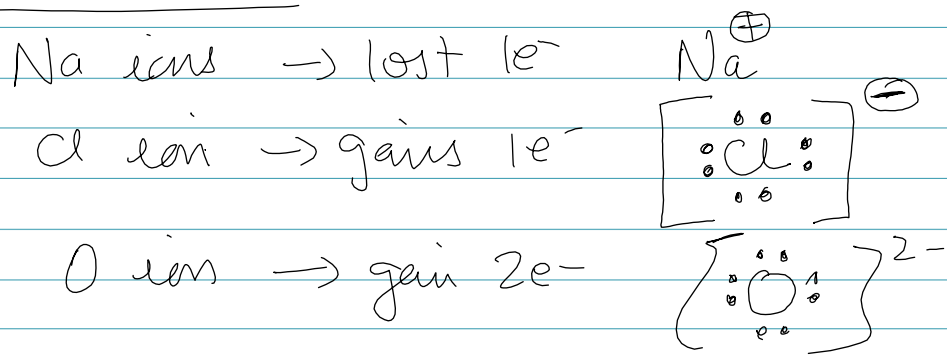 Na ions → lost 1e⁻ Na⁺
Cl ion → gains 1e⁻ [Cl]⁻
O ion → gain 2e⁻ [O]²⁻